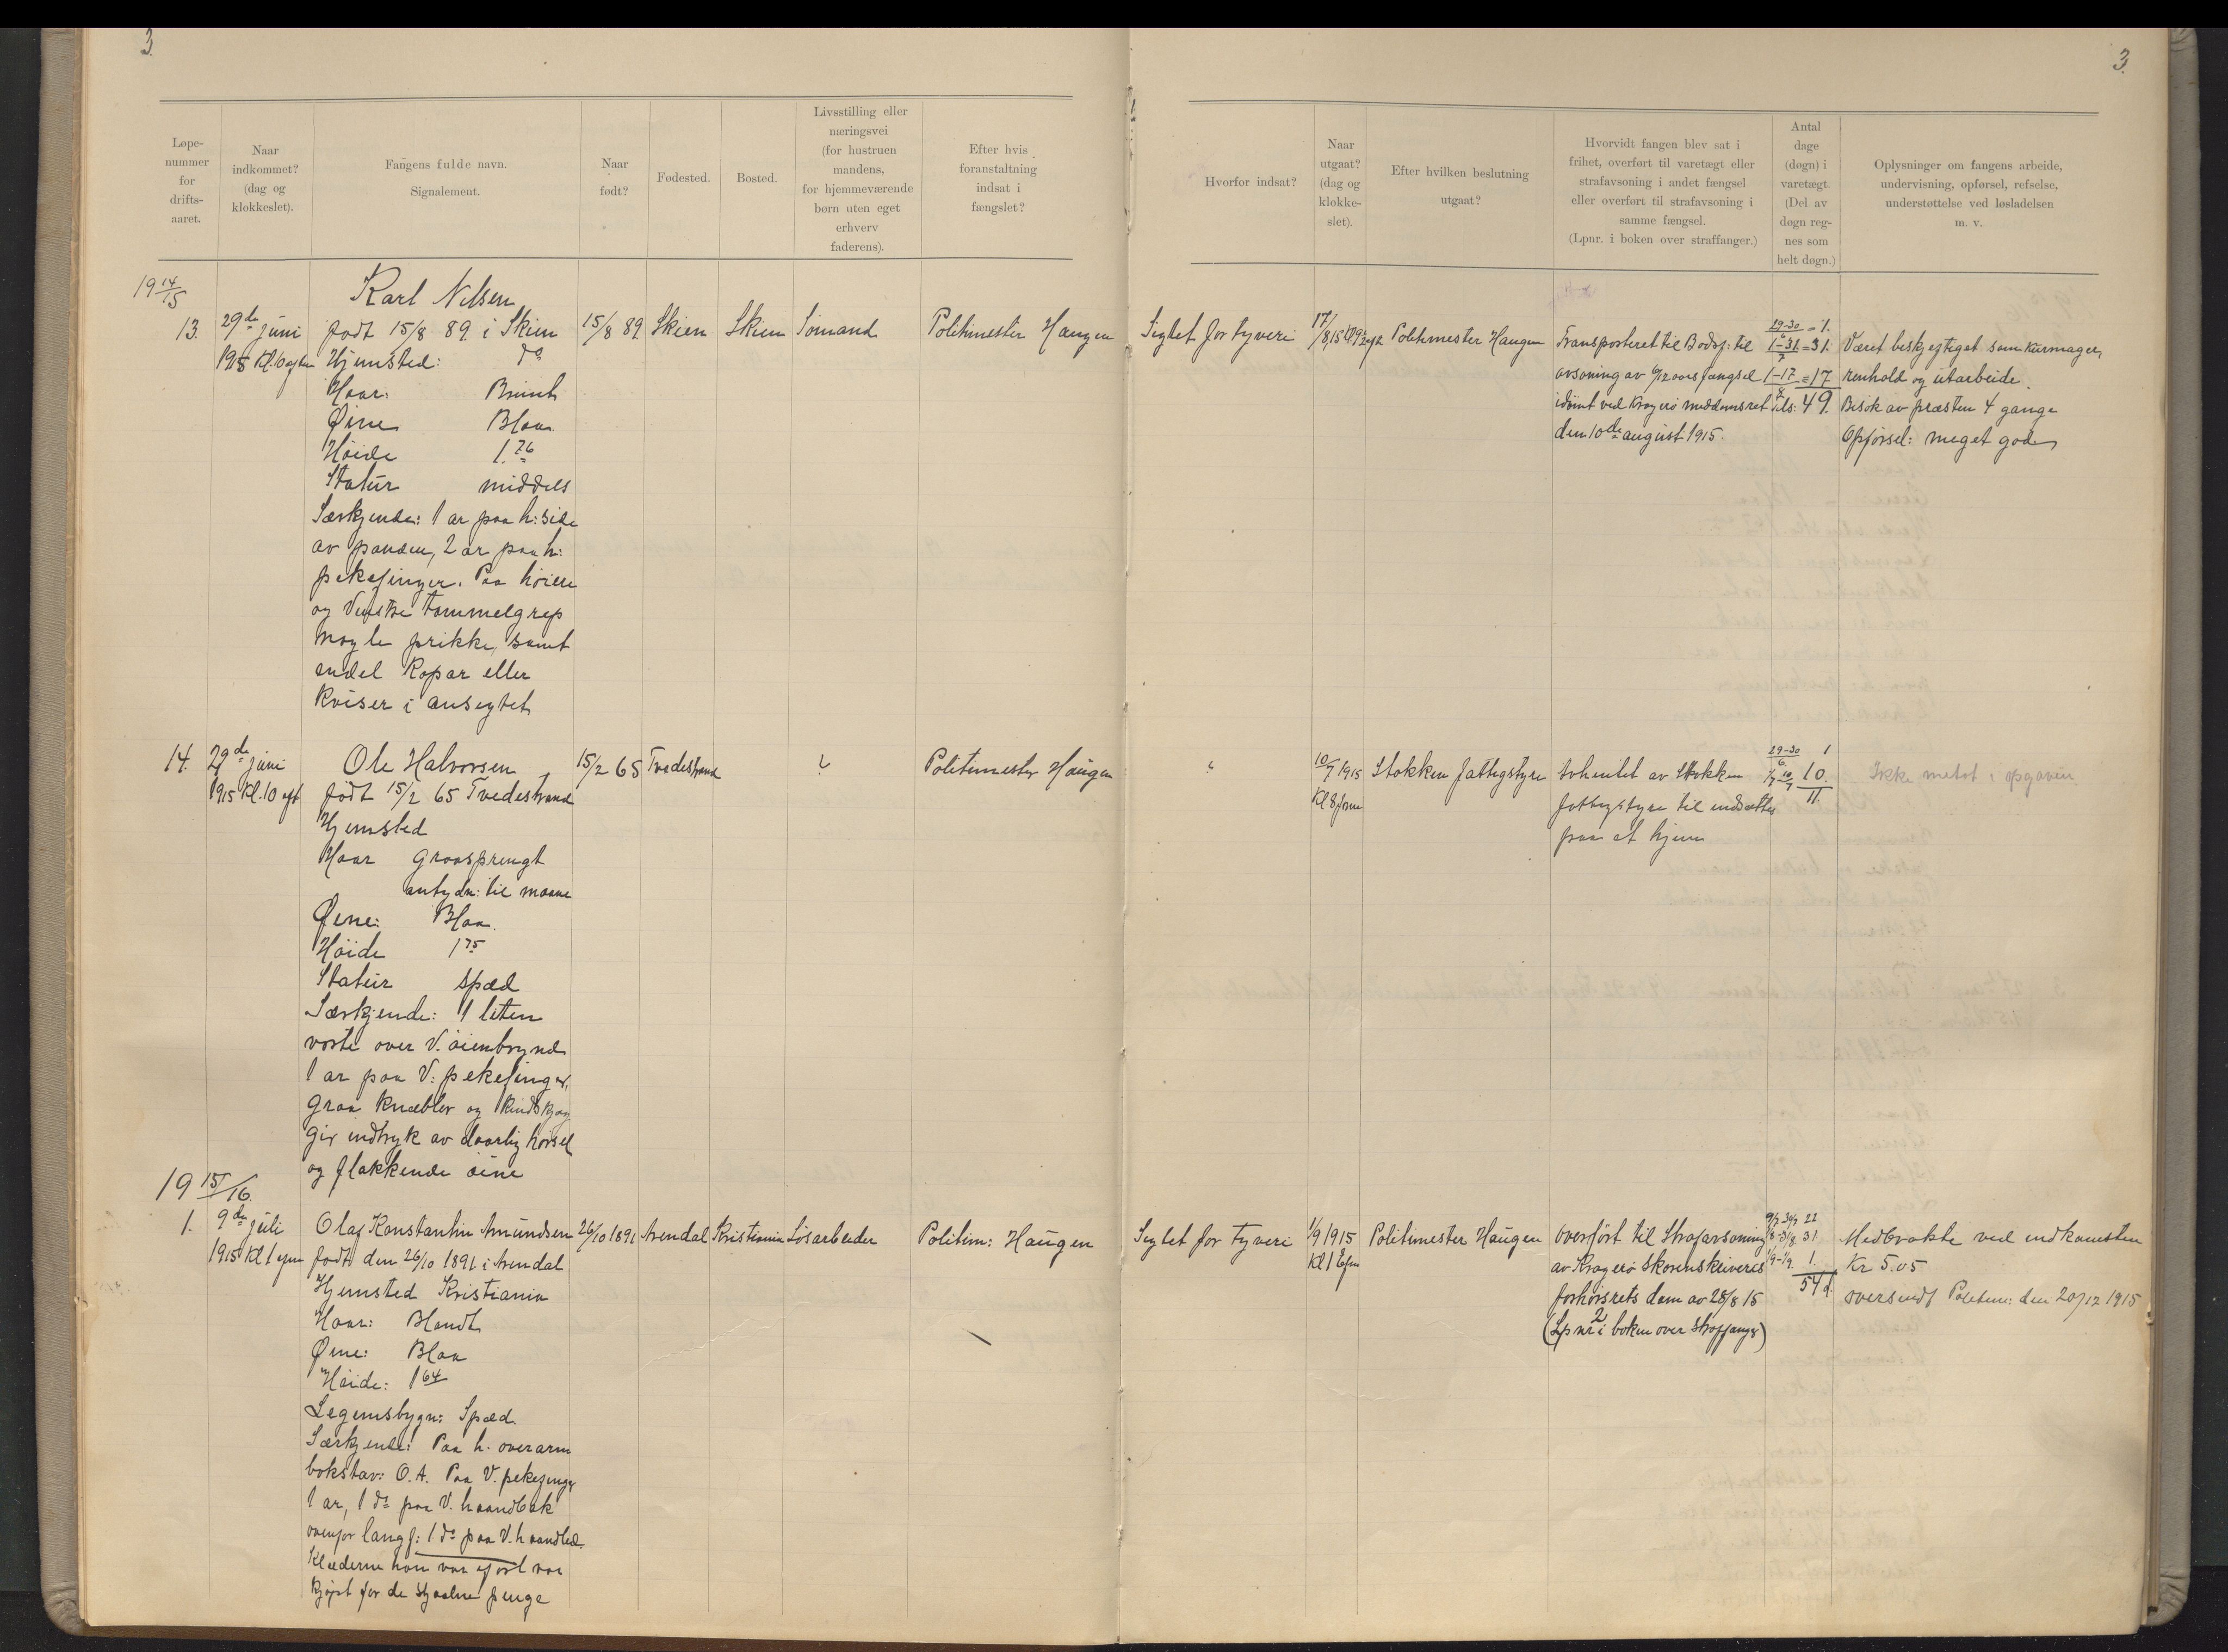 3.
3.
Løpe-
nummer
for
drifts-
aaret.
Naar
indkommet?
(dag og
klokkeslet).
Fangens fulde navn.
Signalement.
Naar
født?
Fødested.
Bosted.
Livsstilling eller
næringsvei
(for hustruen
mandens,
for hjemmeværende
børn uten eget
erhverv
faderens).
Efter hvis
foranstaltning
indsat i
fængslet?
Hvorfor indsat?
Naar
utgaat?
(dag og
klokke-
slet).
Efter hvilken beslutning
utgaat?
Hvorvidt fangen blev sat i
frihet, overført til varetægt eller
strafavsoning i andet fængsel
eller overført til strafavsoning i
samme fængsel.
(Lpnr. i boken over straffanger.)
Antal
dage
(døgn) i
varetægt.
(Del av
døgn reg-
nes som
helt døgn.)
Oplysninger om fangens arbeide,
undervisning, opførsel, refselse,
understøttelse ved løsladelsen
m. v.
19 14/15
13.
29de juni
1915 Kl. 10 eftm
Karl Nilsen
født 15/8 89 i Skien
Hjemsted: do
Haar: Brunt
Øine Blaa
Höide 1.76
Statur middels
Særkjende: 1 ar paa h: side
av panden, 2 ar paa h:
pekefinger. Paa höire
og Venstre tommelgrep
nogle prikke, samt
endel Kopar eller
Kviser i ansigtet
15/8 89
Skien
Skien
Sömand
Politimester Haugen
Sigtet for tyveri
17/8 15 Kl. 9
Politimester Haugen
Transporteret til Bodsf: til
avsoning av aars fængsel
idömt ved Kragerö meddomsret
den 10de august 1915.
29-30/6 = 1.
1-31/7 = 31.
1-17/8 = 17
tils: 49.
Været beskjeftiget som kurmager,
renhold og utarbeide.
Besök av præsten 4 gange
Opförsel: meget god
14.
29de juni
1915 Kl. 10 eft
Ole Halvorsen
födt 15/2 65 Tvedestrand
Hjemsted
Haar graasprengt
antydn: til maane
Øine: Blaa.
Höide 1 75
Statur spæd
Særkjende: 1 liten
vorte over V. öienbryn
1 ar paa V: pekefinger,
Graa Knæbler og Kindskjæg
gir indtryk av daarlig hörsel
og flakkende öine
15/2 65
Tvedestrand
Politimester Haugen
10/7 1915
Kl 8 fm
Stokken fattigstyre
Avhentet av Stokken
fattigstyre til indsættelse
paa et hjem
29-30/6 1
1/7-10/7 10.
11.
Ikke metat i opgaven.
19 15/16.
1.
9de juli
1915 Kl 1 em
Olaf Konstantin Amundsen
född den 26/10 1891 i Arendal
Hjemsted Kristiania
Haar: Blondt
Øine: Blaa
Höide: 1 64
Legemsbygn: Spæd.
Særkjende: Paa h. overarm
bokstav: O. A. Paa V. pekefinger
1 ar, 1 do paa V. haandbak
ovenfor langf: 1 do paa V. haandled.
Klæderne han var ifört var
kjöpt for de stjaalne penge
26/10 1891
Arendal
Kristiania
Lösarbeider
Politim: Haugen
Sigtet for tyveri
1/9 1915
Kl 1 em
Politimester Haugen
overfört til Strafavsoning
av Kragerö Skorenskriveries
forhörsrets dom av 28/8 15
(Lpnr 2 i boken over straffanger)
9/7-30/7 22
1/8-31/8 31
1/9-1/9 1.
54 d.
Medbrakte ved indkomsten
Kr 5.05
oversendt Politim: den 20/12 1915